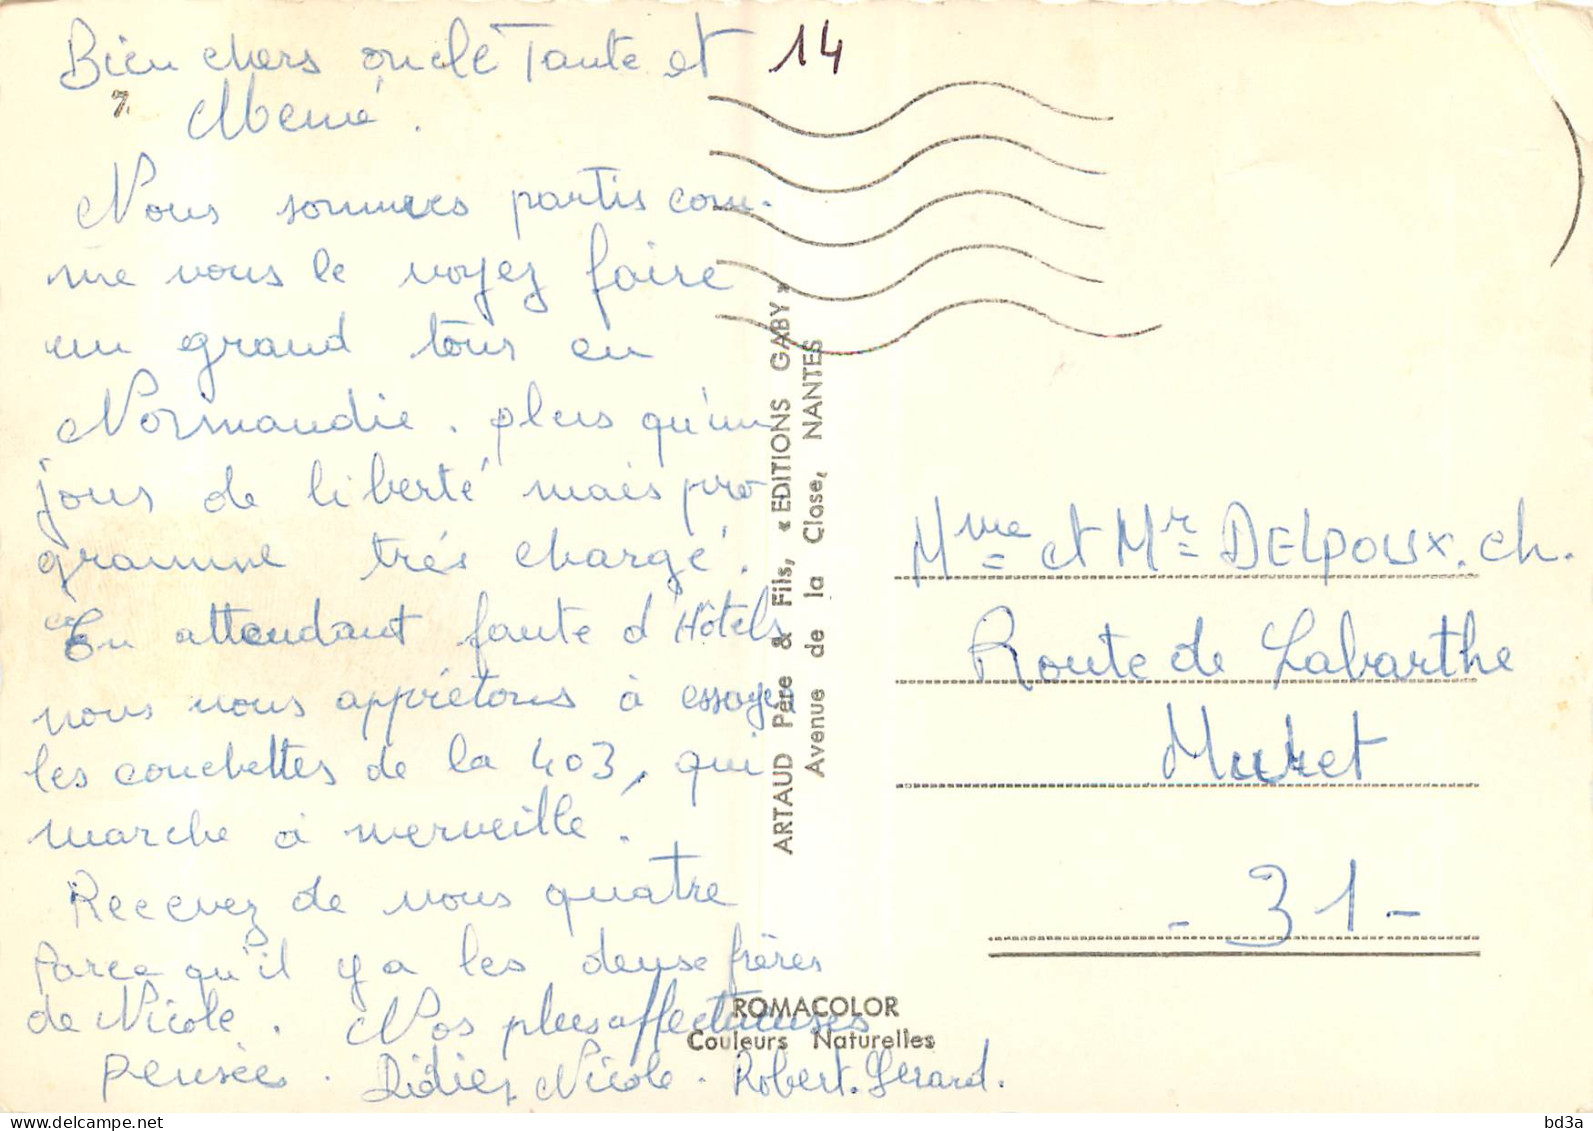 Bien chers oncle Tante et
Mémé.
14
7.
Nous sommes partis com-
me vous le voyez faire
un grand tour en
Normandie. plus qu'un
jour de liberté mais pro
gramme très chargé.
En attendant faute d'Hôtels
nous nous apprêtons à essayer
les couchettes de la 403, qui
marche à merveille.
Recevez de nous quatre
Parce qu'il y a les deux frères
de Nicole. Nos plus affectueuses
pensées. Didier Nicole. Robert. Gérard.
ARTAUD Père & Fils, « EDITIONS GABY »
Avenue de la Close, NANTES
ROMACOLOR
Couleurs Naturelles
Mme et Mr DELPOUX. ch.
Route de Labarthe
Muret
- 31 -
bd3a